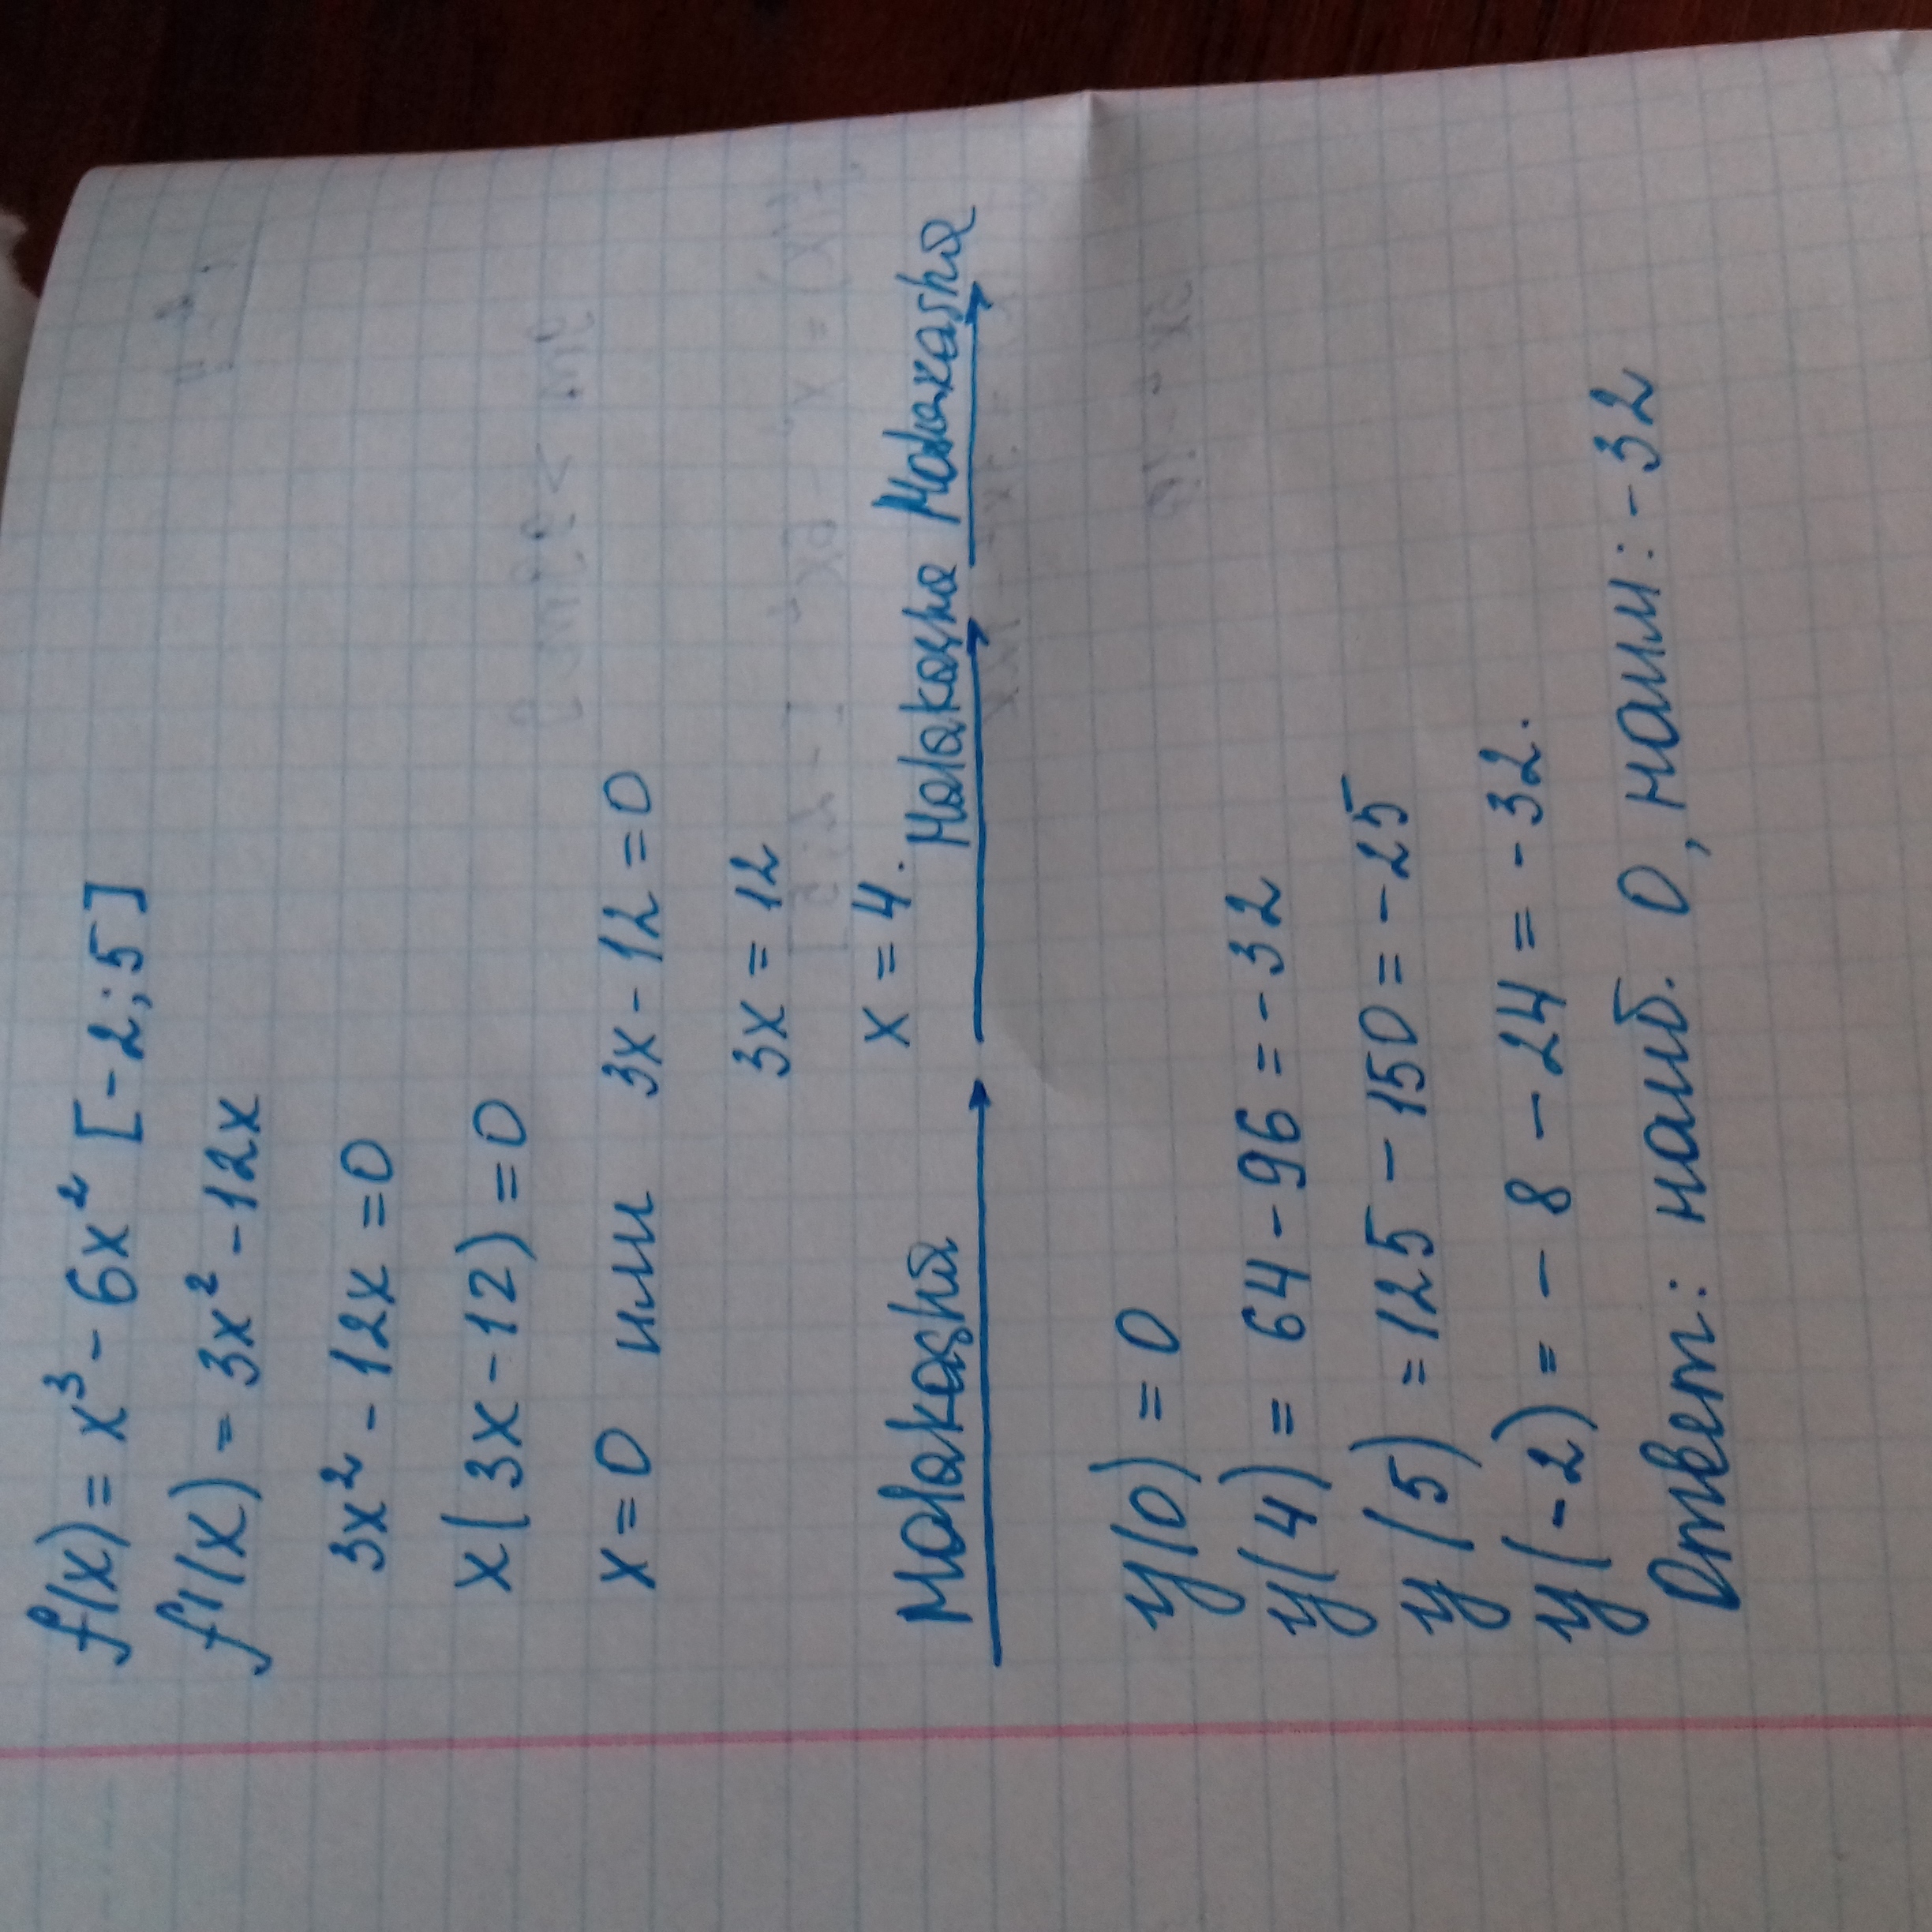 f(x) = x³ - 6x² [-2;5]
f'(x) = 3x² - 12x
3x² - 12x = 0
x(3x - 12) = 0
x = 0 или 3x - 12 = 0
3x = 12
x = 4.
Malakasha Malakasha Malakasha
y(0) = 0
y(4) = 64 - 96 = -32
y(5) = 125 - 150 = -25
y(-2) = - 8 - 24 = -32.
Ответ: наиб. 0, наим: -32